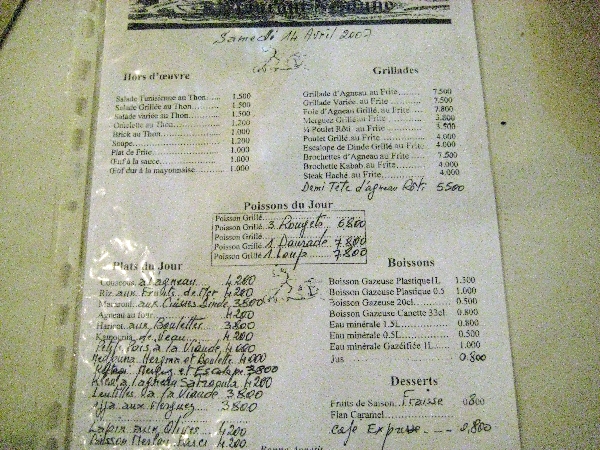 Samedi 14 Avril 2007
Hors d'œuvre
Salade Tunisienne au Thon..... 1.500
Salade Grillée au Thon 1.500
Salade variée au Thon 1.500
Omelette au Thon 1.200
Brick au Thon 1.000
Soupe 1.200
Plat de Frite 1.000
Œuf à la sauce 1.000
Œuf dur à la mayonnaise 1.000
Grillades
Grillade d'Agneau au Frite 7.500
Grillade Variée au Frite 7.500
Foie d'Agneau Grillé au Frite 7.800
Merguez Grillé au Frite 3.800
¼ Poulet Rôti au Frite 3.500
Poulet Grillé au Frite 4.000
Escalope de Dinde Grillé au Frite 4.000
Brochettes d'Agneau au Frite 7.500
Brochette Kabab au Frite 4.000
Steak Haché au Frite 4.000
Demi Tête d'agneau Rôti 5500
Poissons du Jour
Poisson Grillé 3 Rougets 6.800
Poisson Grillé
Poisson Grillé 1 Daurade 7.800
Poisson Grillé 1 Loup 7.800
Plats du Jour
Couscous à l'agneau 4200
Riz aux Fruits de Mer 4200
Macaroni 3800
Agneau au four 4200
Haricot aux Boulettes 3800
Kamounia de Veau 4200
Petit Pois à la Viande 4000
Merguez et Boulette 4000
Merguez et Escalope 3800
à l'agneau 4200
Lentilles à la Viande 3800
aux Merguez 3800
Lapin aux Olives 4200
Poisson Merlan Farci 4200
Boissons
Boisson Gazeuse Plastique 1L 1.300
Boisson Gazeuse Plastique 0.5 1.000
Boisson Gazeuse 20cl 0.500
Boisson Gazeuse Canette 33cl 0.800
Eau minérale 1.5L 0.800
Eau minérale 0.5L 0.500
Eau minérale Gazéifiée 1L 1.000
Jus 0.800
Desserts
Fruits de Saison Fraise 0800
Flan Caramel
Café Express 0,800